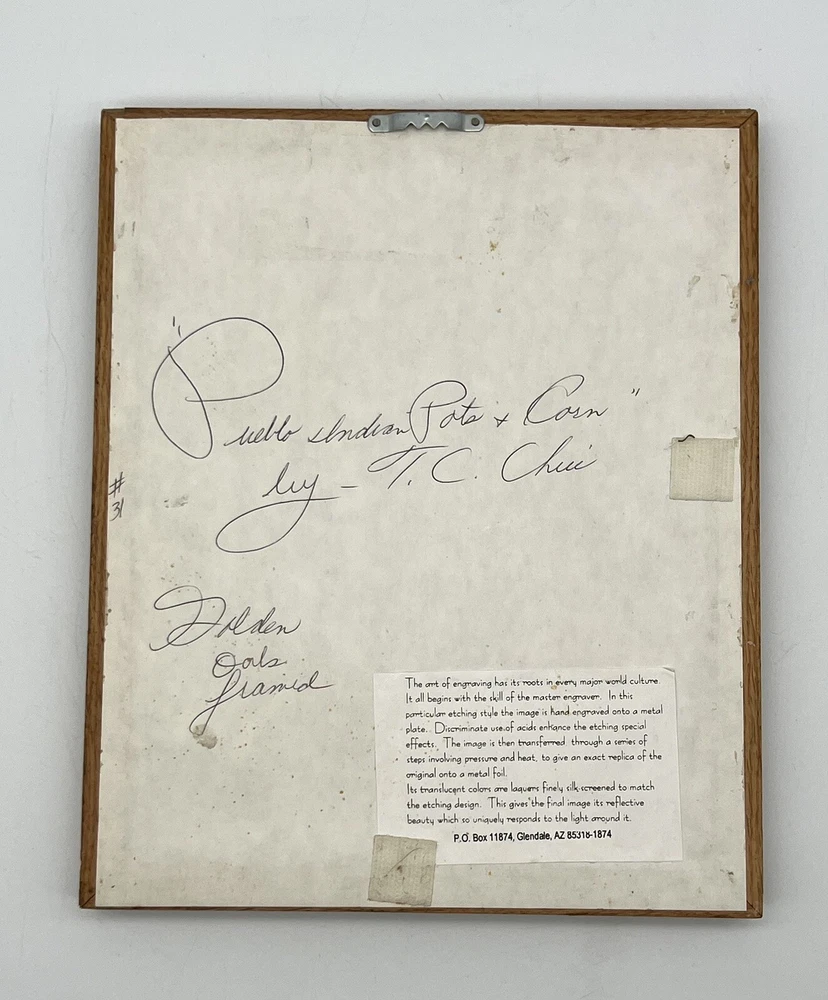 "Pueblo Indian Pots + Corn"
by - T. C. Chiu
#
31
Golden
Oak
framed
The art of engraving has its roots in every major world culture.
It all begins with the skill of the master engraver. In this
particular etching style the image is hand engraved onto a metal
plate. Discriminate use of acids enhance the etching special
effects. The image is then transferred through a series of
steps involving pressure and heat, to give an exact replica of the
original onto a metal foil.
Its translucent colors are laquers finely silk-screened to match
the etching design. This gives the final image its reflective
beauty which so uniquely responds to the light around it.
P.O. Box 11874, Glendale, AZ 85318-1874